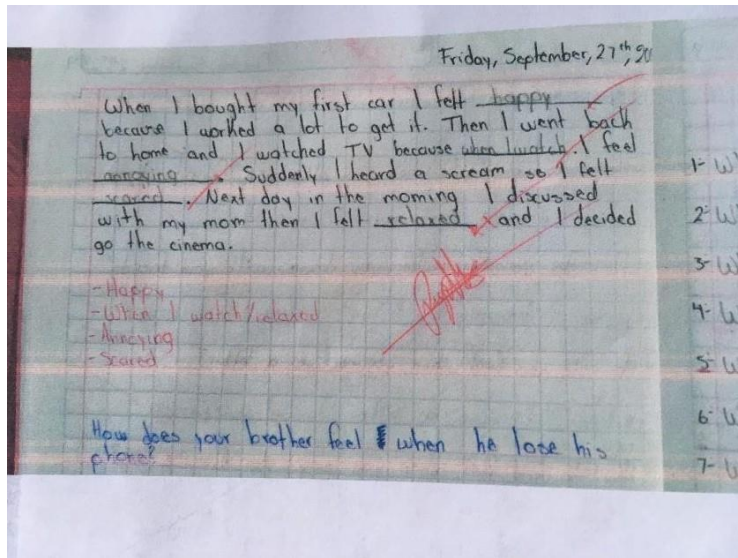 Friday, September, 27th, 20
When I bought my first car I felt happy
because I worked a lot to get it. Then I went back
to home and I watched TV because when I watch. I feel
annoying. Suddenly I heard a scream, so I felt
scared. Next day in the morning I discussed
with my mom then I felt relaxed and I decided
go the cinema.
- Happy
- When I watch/relaxed
- Annoying
- Scared
How does your brother feel when he lose his
phone?
1- W
2- W
3- W
4- W
5- W
6- W
7- W